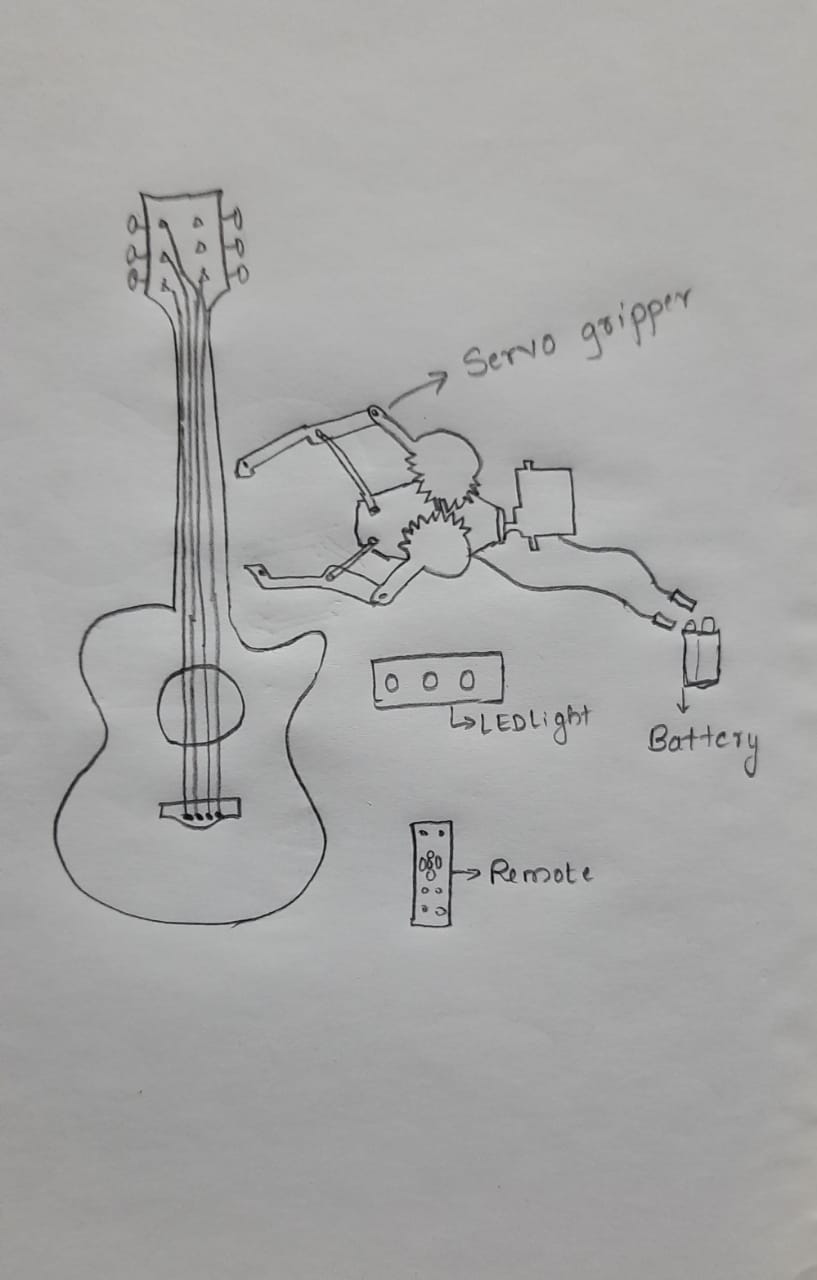 Servo gripper
LED Light
Battery
Remote